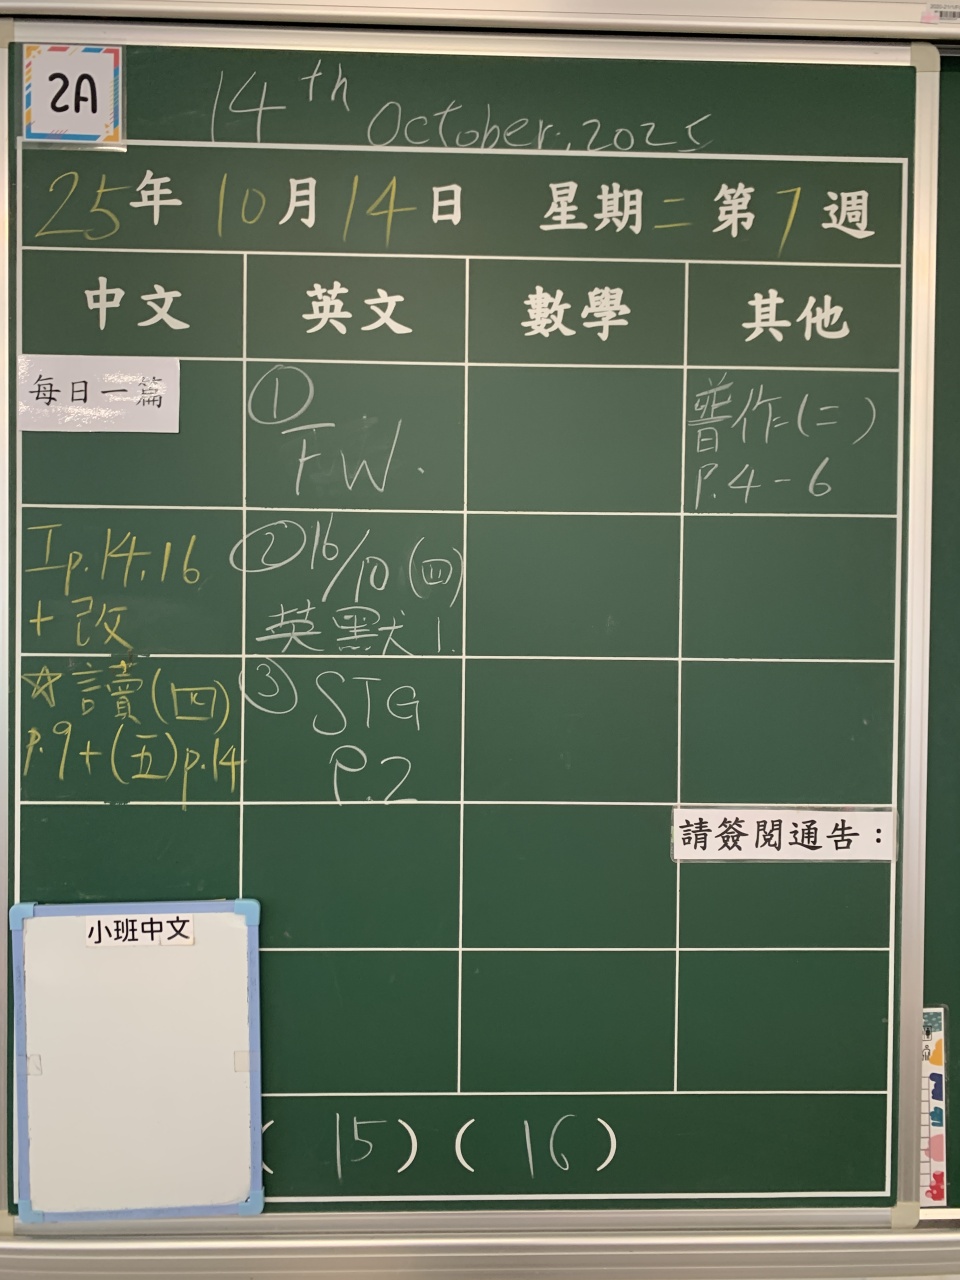 2A
14th October, 2025
25年 10月 14日 星期二 第 7 週
中文 英文 數學 其他
每日一篇
工p.14,16
+改
☆讀(四)
p.9+(五)p.14
① FW.
② 16/10 (四)
英默1.
③ STG
P.2
普作(二)
P.4-6
請簽閱通告：
小班中文
( 15 ) ( 16 )